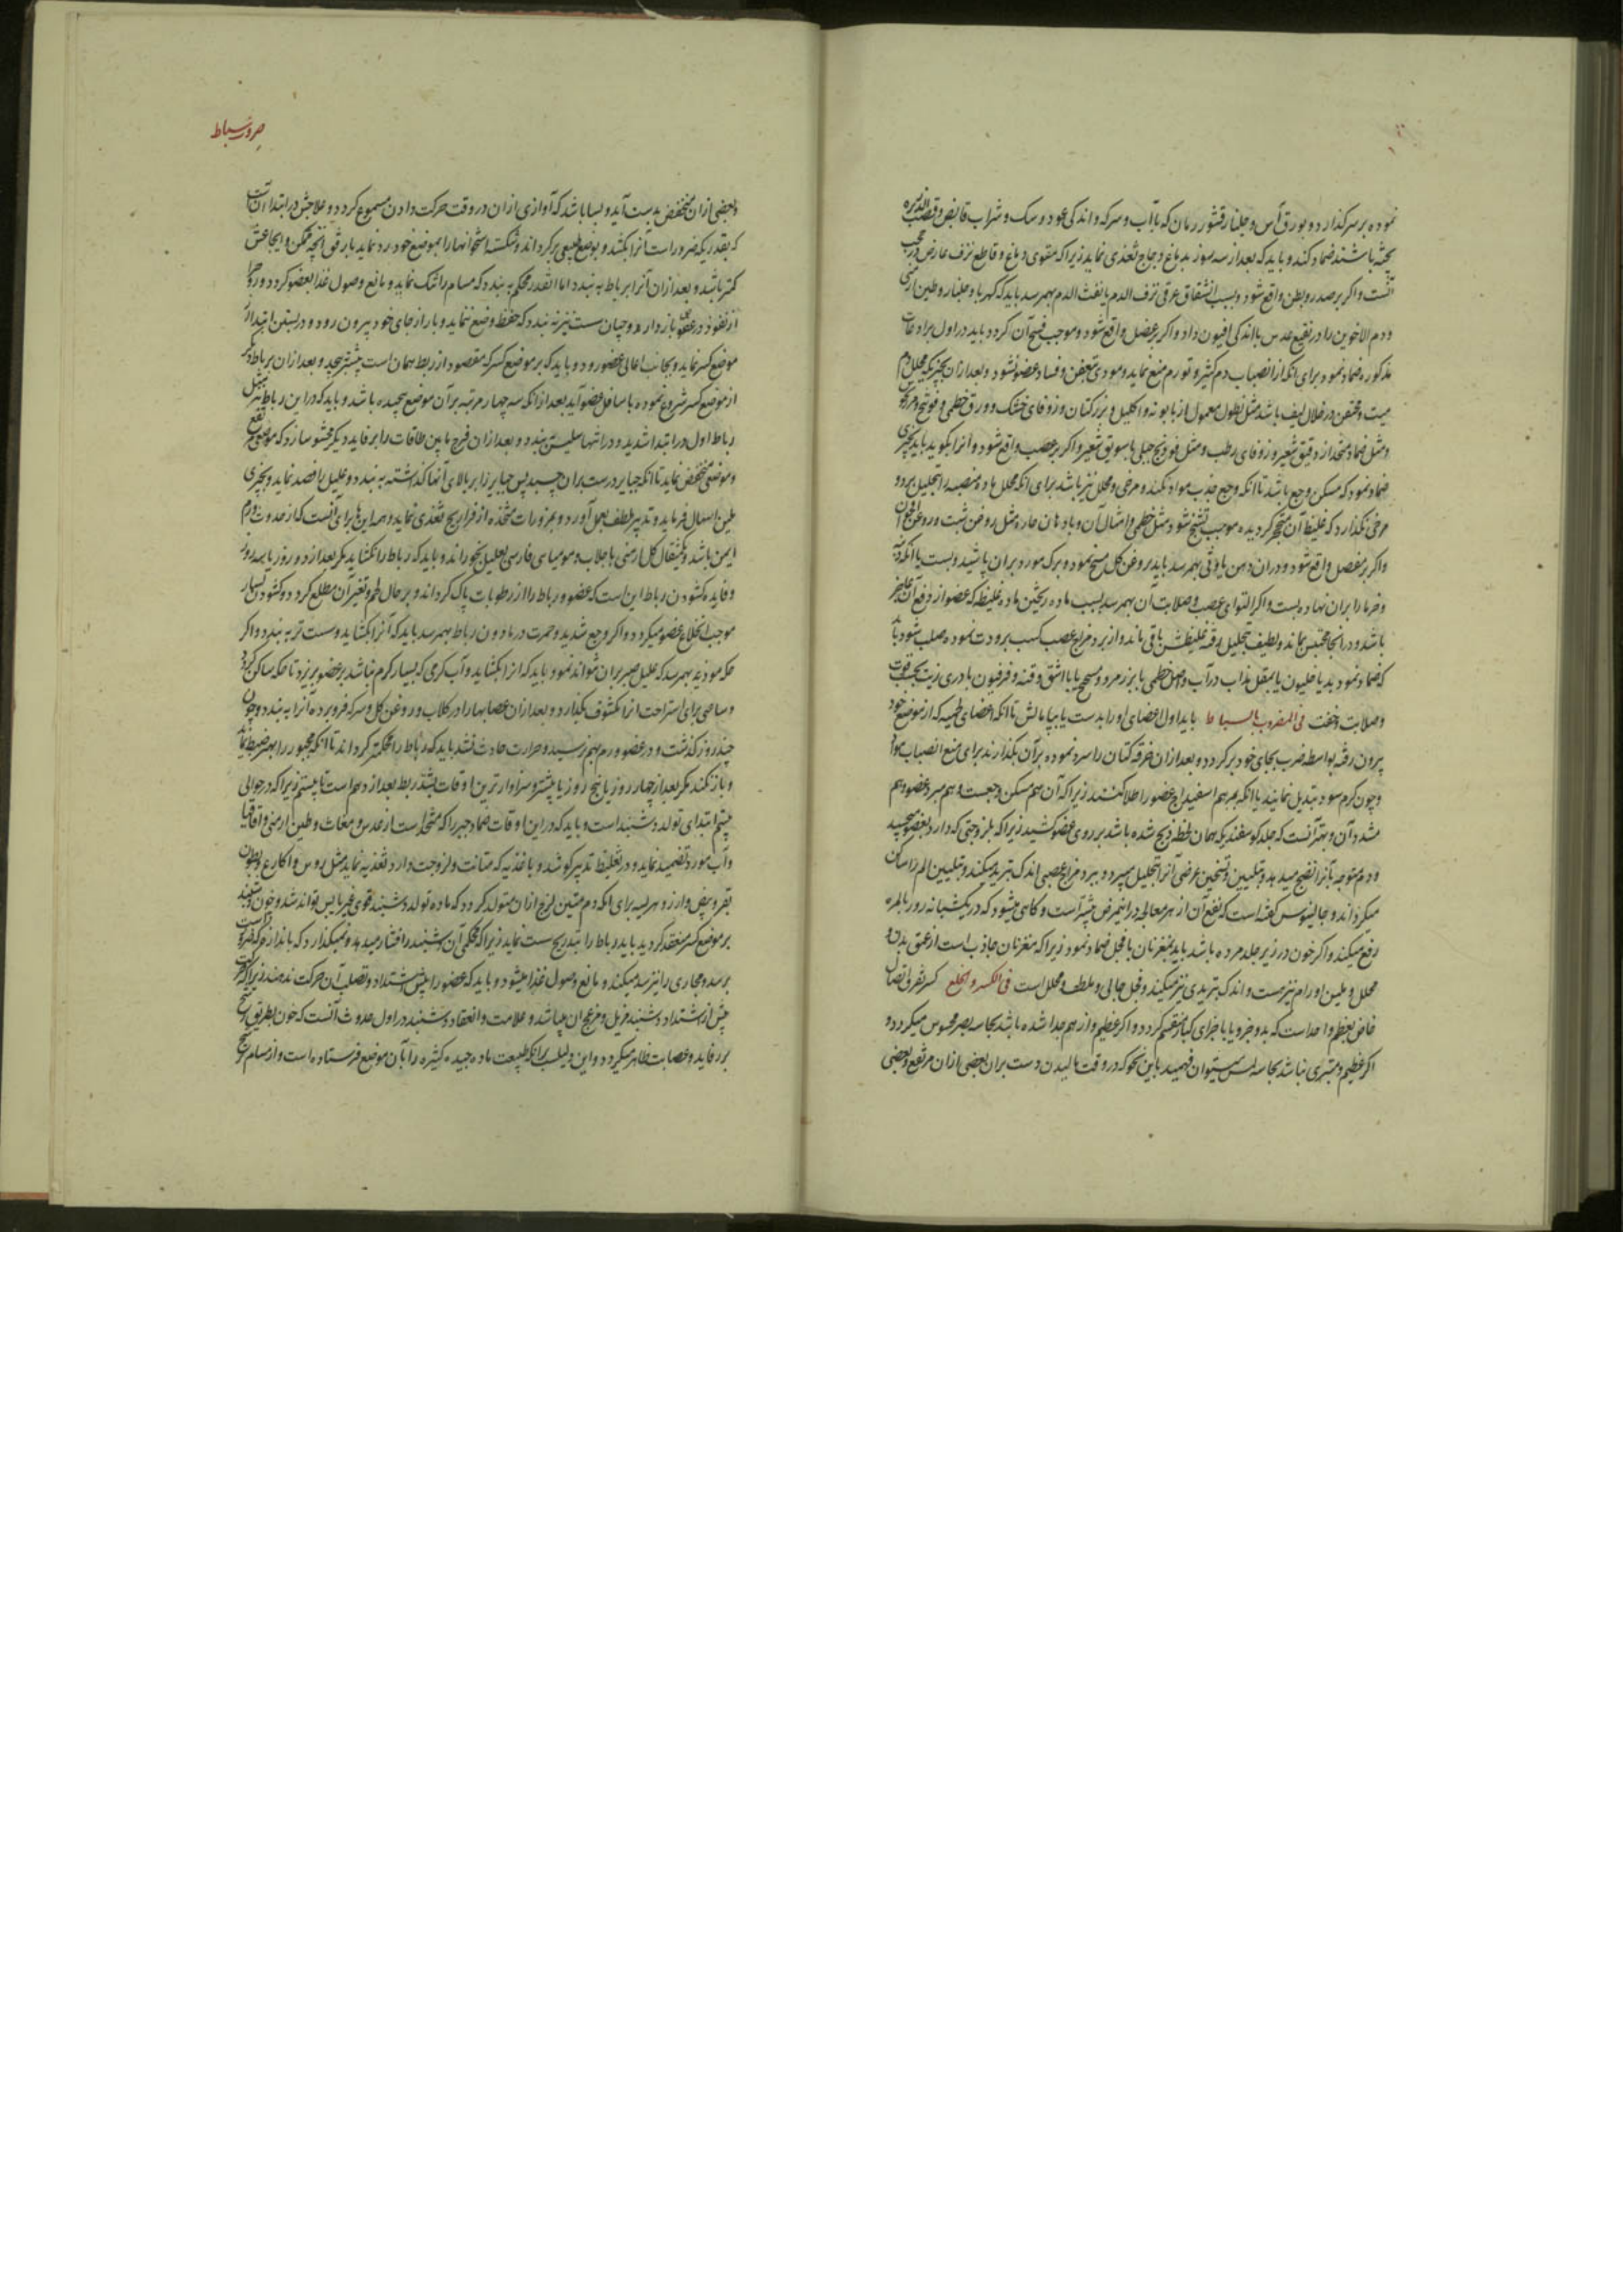 نموده بر سر گذارد و بورق آس و جلنار و قشور رمان که با آب و سرکه و اندکی عود و سک و شراب قابض و قصب الذریره
پخته باشند ضماد کند و باید که بعد از سه روز بدماغ دجاج تغذی نماید زیرا که مقوی دماغ و قاطع نزف عارض در حجب
آنست و اگر بر صدر و بطن واقع شود و بسبب انشقاق عرقی نزف الدم یا نفث الدم بهم رسد باید که کهربا و جلنار و طین ارمنی
و دم الاخوین را در نقیع عدس با اندکی افیون داد و اگر بر عضل واقع شود و موجب فسخ آن گردد باید در اول برادعات
مذکوره ضماد نمود برای آنکه از انصباب دم کثیر و تورم منع نماید و مودی بتعفن و فساد عضو نشود و بعد از ان بچیزیکه محلل دم
میت و محتقن در خلال لیف باشد مثل نطول معمول از بابونه و اکلیل و بزر کتان و زوفای خشک و ورق خطمی و فوتنج و مرزنجوش
و مثل ضماد متخذ از دقیق شعیر و زوفای رطب و مثل فوتنج جبلی با سویق شعیر و اگر بر عصب واقع شود و آنرا بکوبد باید بچیزی
ضماد نمود که مسکن وجع باشد تا آنکه وجع جذب مواد نکند و مرخی و محلل نیز باشد برای آنکه محلل ماده منصبه را بتحلیل برد و
مرخی نگذارد که غلیظ آن متحجر گردیده موجب تشنج شود مثل خطمی و امثال آن و بادهان حاره مثل روغن شبت و روغن اقحوان
و اگر بر مفصل واقع شود و در ان وهن یا وثی بهم رسد باید بروغن گل مسح نمود و برگ مورد بر ان پاشید و بست یا آنکه دنبه
و خرما را بر ان نهاده بست و اگر التوای عصب و صلابت آن بهم رسد بسبب ماده ریختن ماده غلیظه که عضو از دفع آن عاجز
باشد و در انجا محتبس بماند و لطیف بتحلیل رفته غلیظش باقی ماند و از برد مزاج عصب کسب برودت نموده صلب شود باید
که ضماد نمود بدیاخلیون یا بمقل مذاب در آب و اصل خطمی یا بزر مرو و مسح یا با اشق و قنه و فرفیون با دردی زیت بحسب قوت
و صلابت و خفت فی المضروب بالسیاط باید اول اعضای او را بدست یا بپا مالش تا آنکه اعضای لحمیه که از موضع خود
بیرون رفته بواسطه ضرب بجای خود برگردد و بعد از ان خرقه کتان را سرد نموده بر آن بگذارند برای منع انصباب مواد
و چون گرم شود تبدیل نمایند یا آنکه بمرهم اسفیداج عضو را طلا کنند زیرا که آن هم مسکن وجعست و هم مبرد عضو و هم
مشدد آن و بهتر آنست که جلد گوسفندیکه همان لحظه ذبح شده باشد بر روی عضو کشید زیرا که بلزوجتی که دارد بعضو میچسبد
و دم متوجه بآنرا نضج میدهد و بتلیین و تسخین عرضی آنرا بتحلیل میبرد و ببرد مزاج عصبی اندک تبرید میکند و بتلیین الم را ساکن
میگرداند و جالینوس گفته است که نفع آن از هر معالجه در اینمرض بیشتر است و گاهی میشود که در یکشبانه روز بالمره
رفع میکند و اگر خون در زیر جلد مرده باشد باید بمغز نان با فجل ضماد نمود زیرا که مغز نان جاذب است از عمق بدن و
محلل و ملین اورام نیز هست و اندک تبریدی نیز میکند و فجل جالی و ملطف و محلل است فی الکسر و الخلع کسر تفرق اتصال
خاص بعظم واحد است که بدو جزو یا باجزای کبار منقسم گردد و اگر عظیم و از هم جدا شده باشد بحاسه بصر محسوس میگردد و
اگر عظیم و متبری نباشد بحاسه لمس میتوان فهمید باین نحو که در وقت مالیدن دست بر ان بعضی از ان مرتفع و بعضی
ضرورت سیاط
و بعضی از ان منخفض بدست آید و بسا باشد که آوازی از ان در وقت حرکت دادن مسموع گردد و علاجش در ابتدا آنست
که بقدریکه ضرور است آنرا بکشند و بوضع طبیعی برگردانند و شکسته استخوانها را بموضع خود رد نماید بارفق آنچه ممکن و ایجاعش
کمتر باشد و بعد از ان آنرا برباط به بندد اما آنقدر محکم به نبندد که مسام را تنگ نماید و مانع وصول غذا بعضو گردد و روح را
از نفوذ در عضو بازدارد و چنان سست نیز نه نبندد که حفظ وضع ننماید و باز از جای خود بیرون رود و در بستن ابتدا از
موضع کسر نماید و بجانب اعالی عضو رود و باید که بر موضع کسر که مقصود از ربط همان است بیشتر پیچد و بعد از ان برباط دیگر
از موضع کسر شروع نموده باسافل عضو آید بعد از آنکه سه چهار مرتبه بر آن موضع پیچیده باشد و باید که در این رباط نیز مثل
رباط اول در ابتدا شدید و در انتها سلیس به بندد و بعد از ان فرج مابین طاقات را برفاید دیگر محشو سازد که موضعی مرتفع
و موضعی منخفض ننماید تا آنکه جبایر درست بر ان چسبد پس جبایر را بر بالای آنها گذاشته به بندد و علیل را فصد نماید و بچیزی
ملین اسهال فرماید و تدبیر ملطف بعمل آورد و بمزورات متخذه از فراریج تغذی نماید و همه اینها برای آنست که از حدوث ورم
ایمن باشد و یکمثقال گل ارمنی با جلاب و مومیای فارسی بعلیل بخوراند و باید که رباط را نگشاید مگر بعد از دو روز یا سه روز
و فایده گشودن رباط این است که عضو و رباط را از رطوبات پاک گرداند و بر حال لحم و تغیر آن مطلع گردد و گشودن بسیار
موجب انخلاع عضو میگردد و اگر وجع شدید و حمرت در مادون رباط بهم رسد باید که آنرا بگشاید و سست تر به بندد و اگر
حکه موذیه بهم رسد که علیل صبر بر ان نتواند نمود باید که آنرا بگشاید و آب گرمی که بسیار گرم نباشد بر عضو بریزد تا حکه ساکن گردد
و ساعتی برای استراحت آنرا مکشوف بگذارد و بعد از ان عصابها را در گلاب و روغن گل و سرکه فروبرده آنرا به بندد و چون
چند روز گذشت و در عضو ورم بهم نرسید و حرارت حادث نشد باید که رباط را محکمتر گرداند تا آنکه مجبور را بهتر ضبط نماید
و باز نکند مگر بعد از چهار روز یا پنج روز یا بیشتر و سزاوارترین اوقات بشد ربط بعد از دهم است تا بیستم زیرا که در حوالی
بیستم ابتدای تولد دشبند است و باید که در این اوقات ضماد جبر را که متخذ است از عدس و مغاث و طین ارمنی و اقاقیا
و آب مورد تضمید نماید و در تغلیظ تدبیر کوشد و باغذیه که متانت و لزوجت دارد تغذیه نماید مثل رؤس و اکارع و بطون
بقر و بیض و ارز و هریسه برای آنکه دم متین لزج از ان متولد گردد که ماده تولد دشبند قوی غیر یابس تواند شد و چون دشبند
بر موضع کسر منعقد گردید باید رباط را بتدریج سست نماید زیرا که محکمی آن دشبند را فشار میدهد و نمیگذارد که باندازه که ضرور است
برسد و مجاری را نیز سد میکند و مانع وصول غذا میشود و باید که عضو را پیش از اشتداد و تصلب آن حرکت ندهند زیرا که حرکت
پیش از اشتداد دشبند مزیل و مزعج ان میباشد و علامت انعقاد دشبند در اول حدوث آنست که خون بطریق رشح
بر رفاید و عصابت ظاهر میگردد و این دلیلست بر آنکه طبیعت ماده جیده کثیره را بآن موضع فرستاده است و از مسام رشح